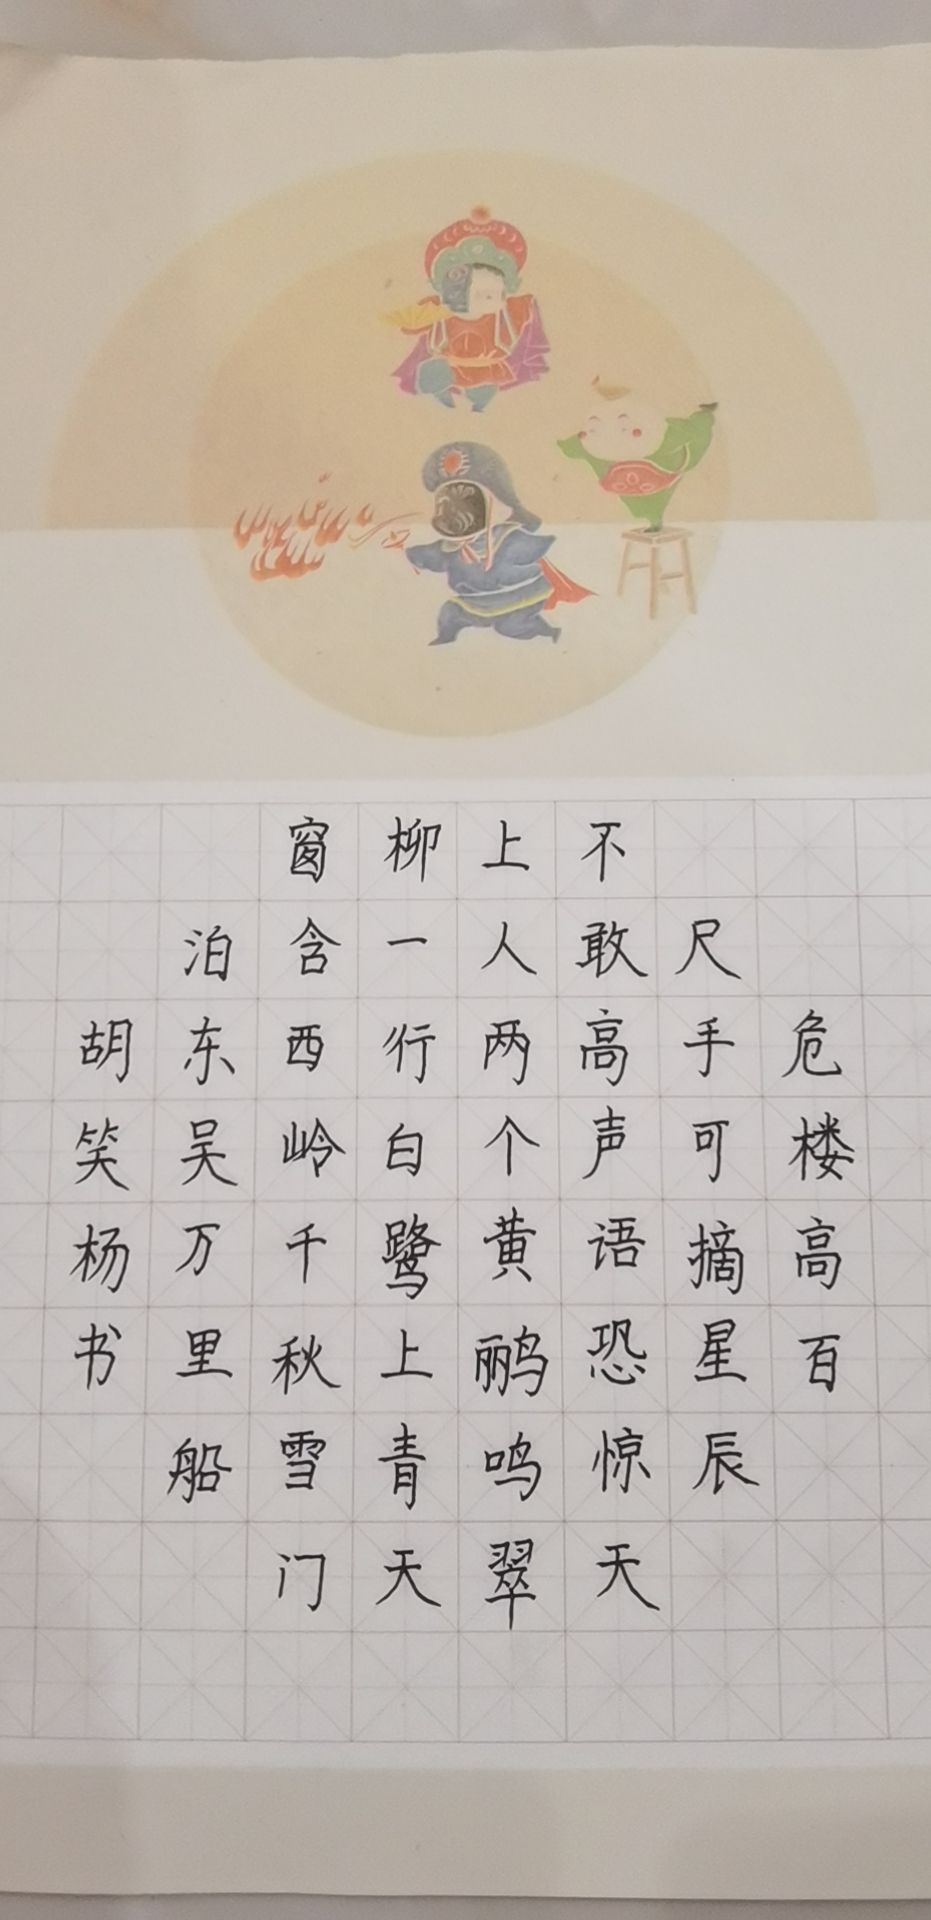 危楼高百
尺手可摘星辰
不敢高声语恐惊天
上人两个黄鹂鸣翠
柳一行白鹭上青天
窗含西岭千秋雪门
泊东吴万里船
胡笑杨书